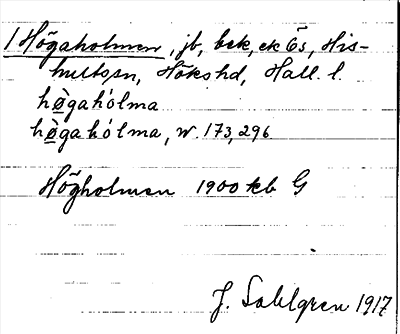 / Högaholmen, jb, bek, ek Ös, His-
hultssn, Hökshd, Hall. l.
hògahólma
hògahólma, w. 173, 296
Högholmen 1900 kb G
J. Sahlgren 1917